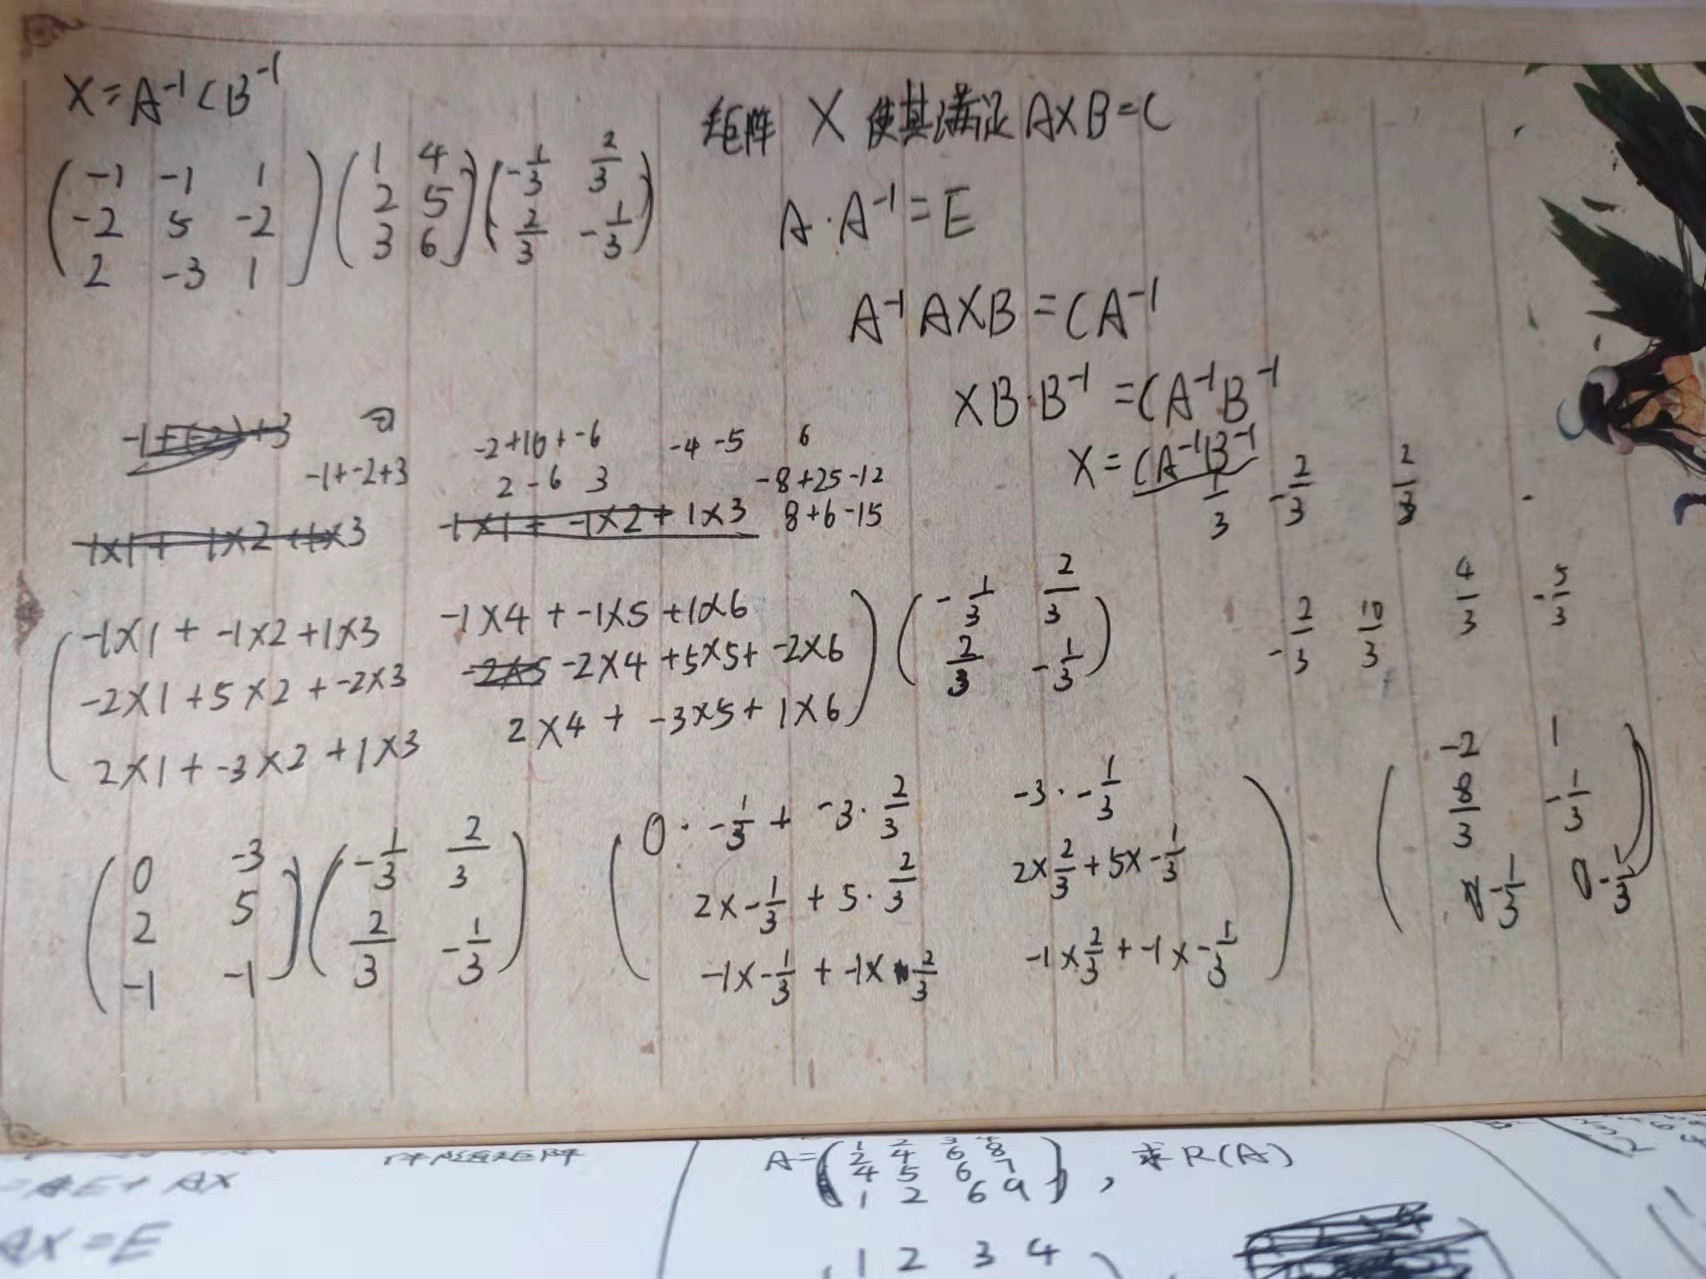 X=A⁻¹CB⁻¹
矩阵 X 使其满足 AXB=C
-1 -1 1
-2 5 -2
2 -3 1
1 4
2 5
3 6
-1/3 2/3
2/3 -1/3
A·A⁻¹=E
A⁻¹AXB=CA⁻¹
XB·B⁻¹=CA⁻¹B⁻¹
X=CA⁻¹B⁻¹
-1+-2+3
-2+10+-6
2-6 3
-4-5 6
-8+25-12
8+6-15
1/3 -2/3 2/3
-2/3 10/3 4/3 -5/3
-1×1+-1×2+1×3 -1×4+-1×5+1×6
-2×1+5×2+-2×3 -2×4+5×5+-2×6
2×1+-3×2+1×3 2×4+-3×5+1×6
-1/3 2/3
2/3 -1/3
0 -3
2 5
-1 -1
-1/3 2/3
2/3 -1/3
0·-1/3+-3·2/3 -3·-1/3
2×-1/3+5·2/3 2×2/3+5×-1/3
-1×-1/3+-1×2/3 -1×2/3+-1×-1/3
-2 1
8/3 -1/3
-1/3 -1/3
AX=E
A=
1 2 3 4
2 4 6 8
4 5 6 7
1 2 6 9
, 求R(A)
1 2 3 4